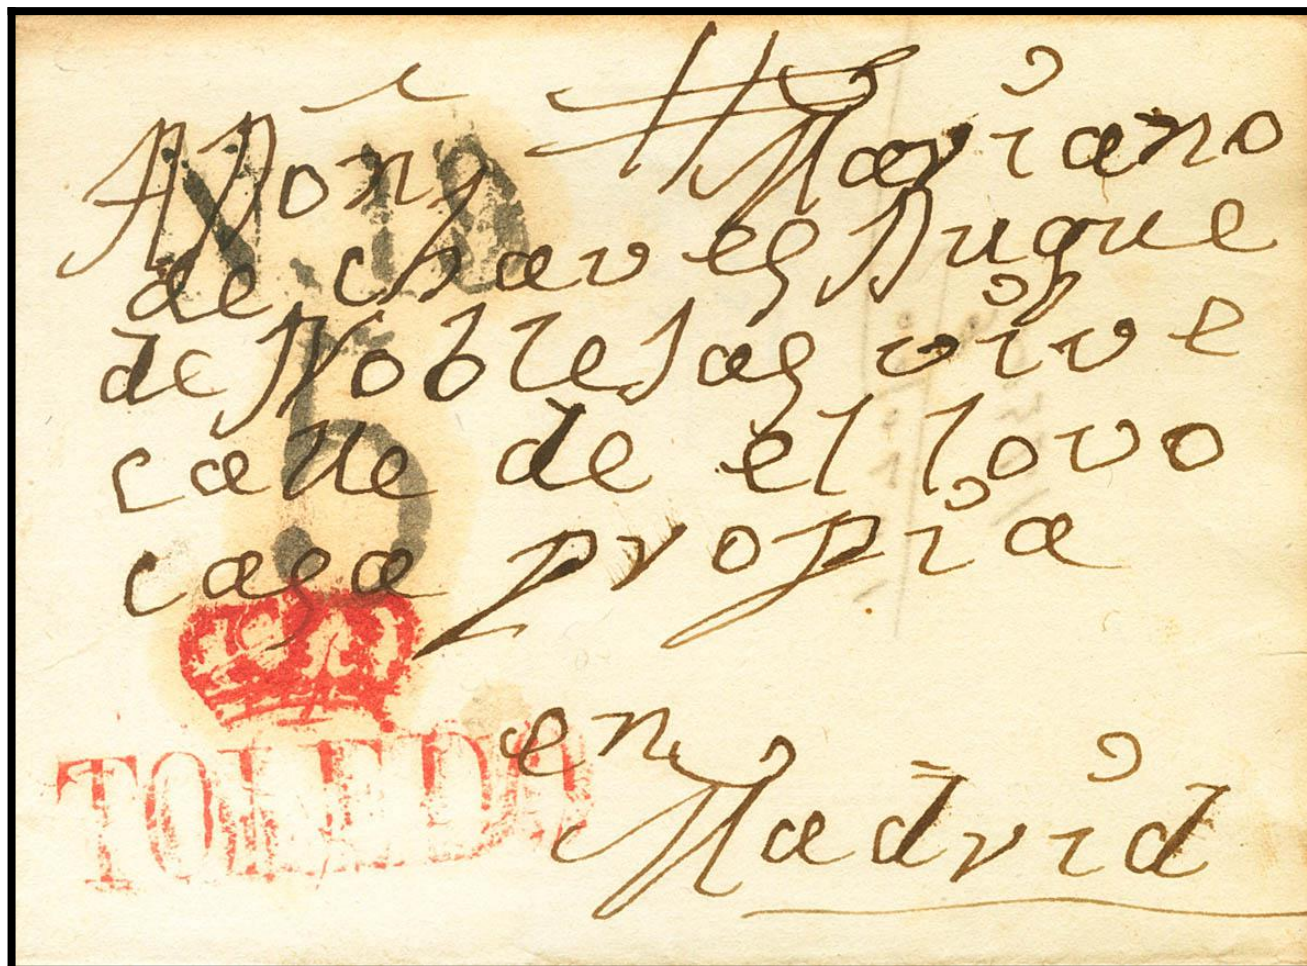 A Don Mariano
de chaves Duque
de Noblesas vive
calle de el lovo
casa propia
en
Madrid
TOLEDO